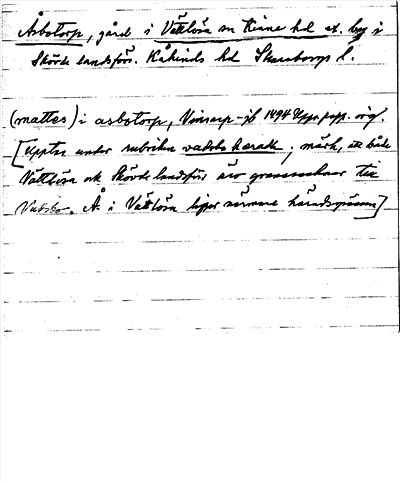 Åsbotorp, gård i Vättlösa sn Kinne hd at. by i
Skövde landsförs. Kåkinds hd Skaraborgs l.
(mattes) i asbotorp, Vinsarp-jb 1494 Uppr. papp. orig.
[Upptas under rubriken vadsbo hærath; märk, att både
Vättlösa ok Skövde landsförs äro grannsocknar till
Vadsbo. Å i Vättlösa ligger närmare häradsgränsen]